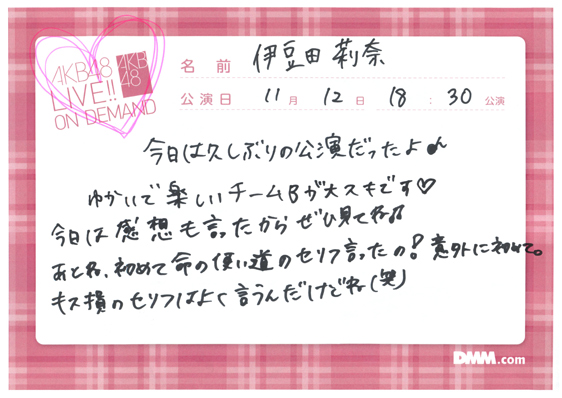 AKB48
LIVE!!
ON DEMAND
AKB
48
名前 伊豆田莉奈
公演日 11月 12日 18:30 公演
今日は久しぶりの公演だったよ♪
ゆかいで楽しいチームBが大スキです♡
今日は感想も言ったからぜひ見てね♫
あとね、初めて命の使い道のセリフ言ったの!意外に初めて。
キス損のセリフはよく言うんだけどね(笑)
DMM.com